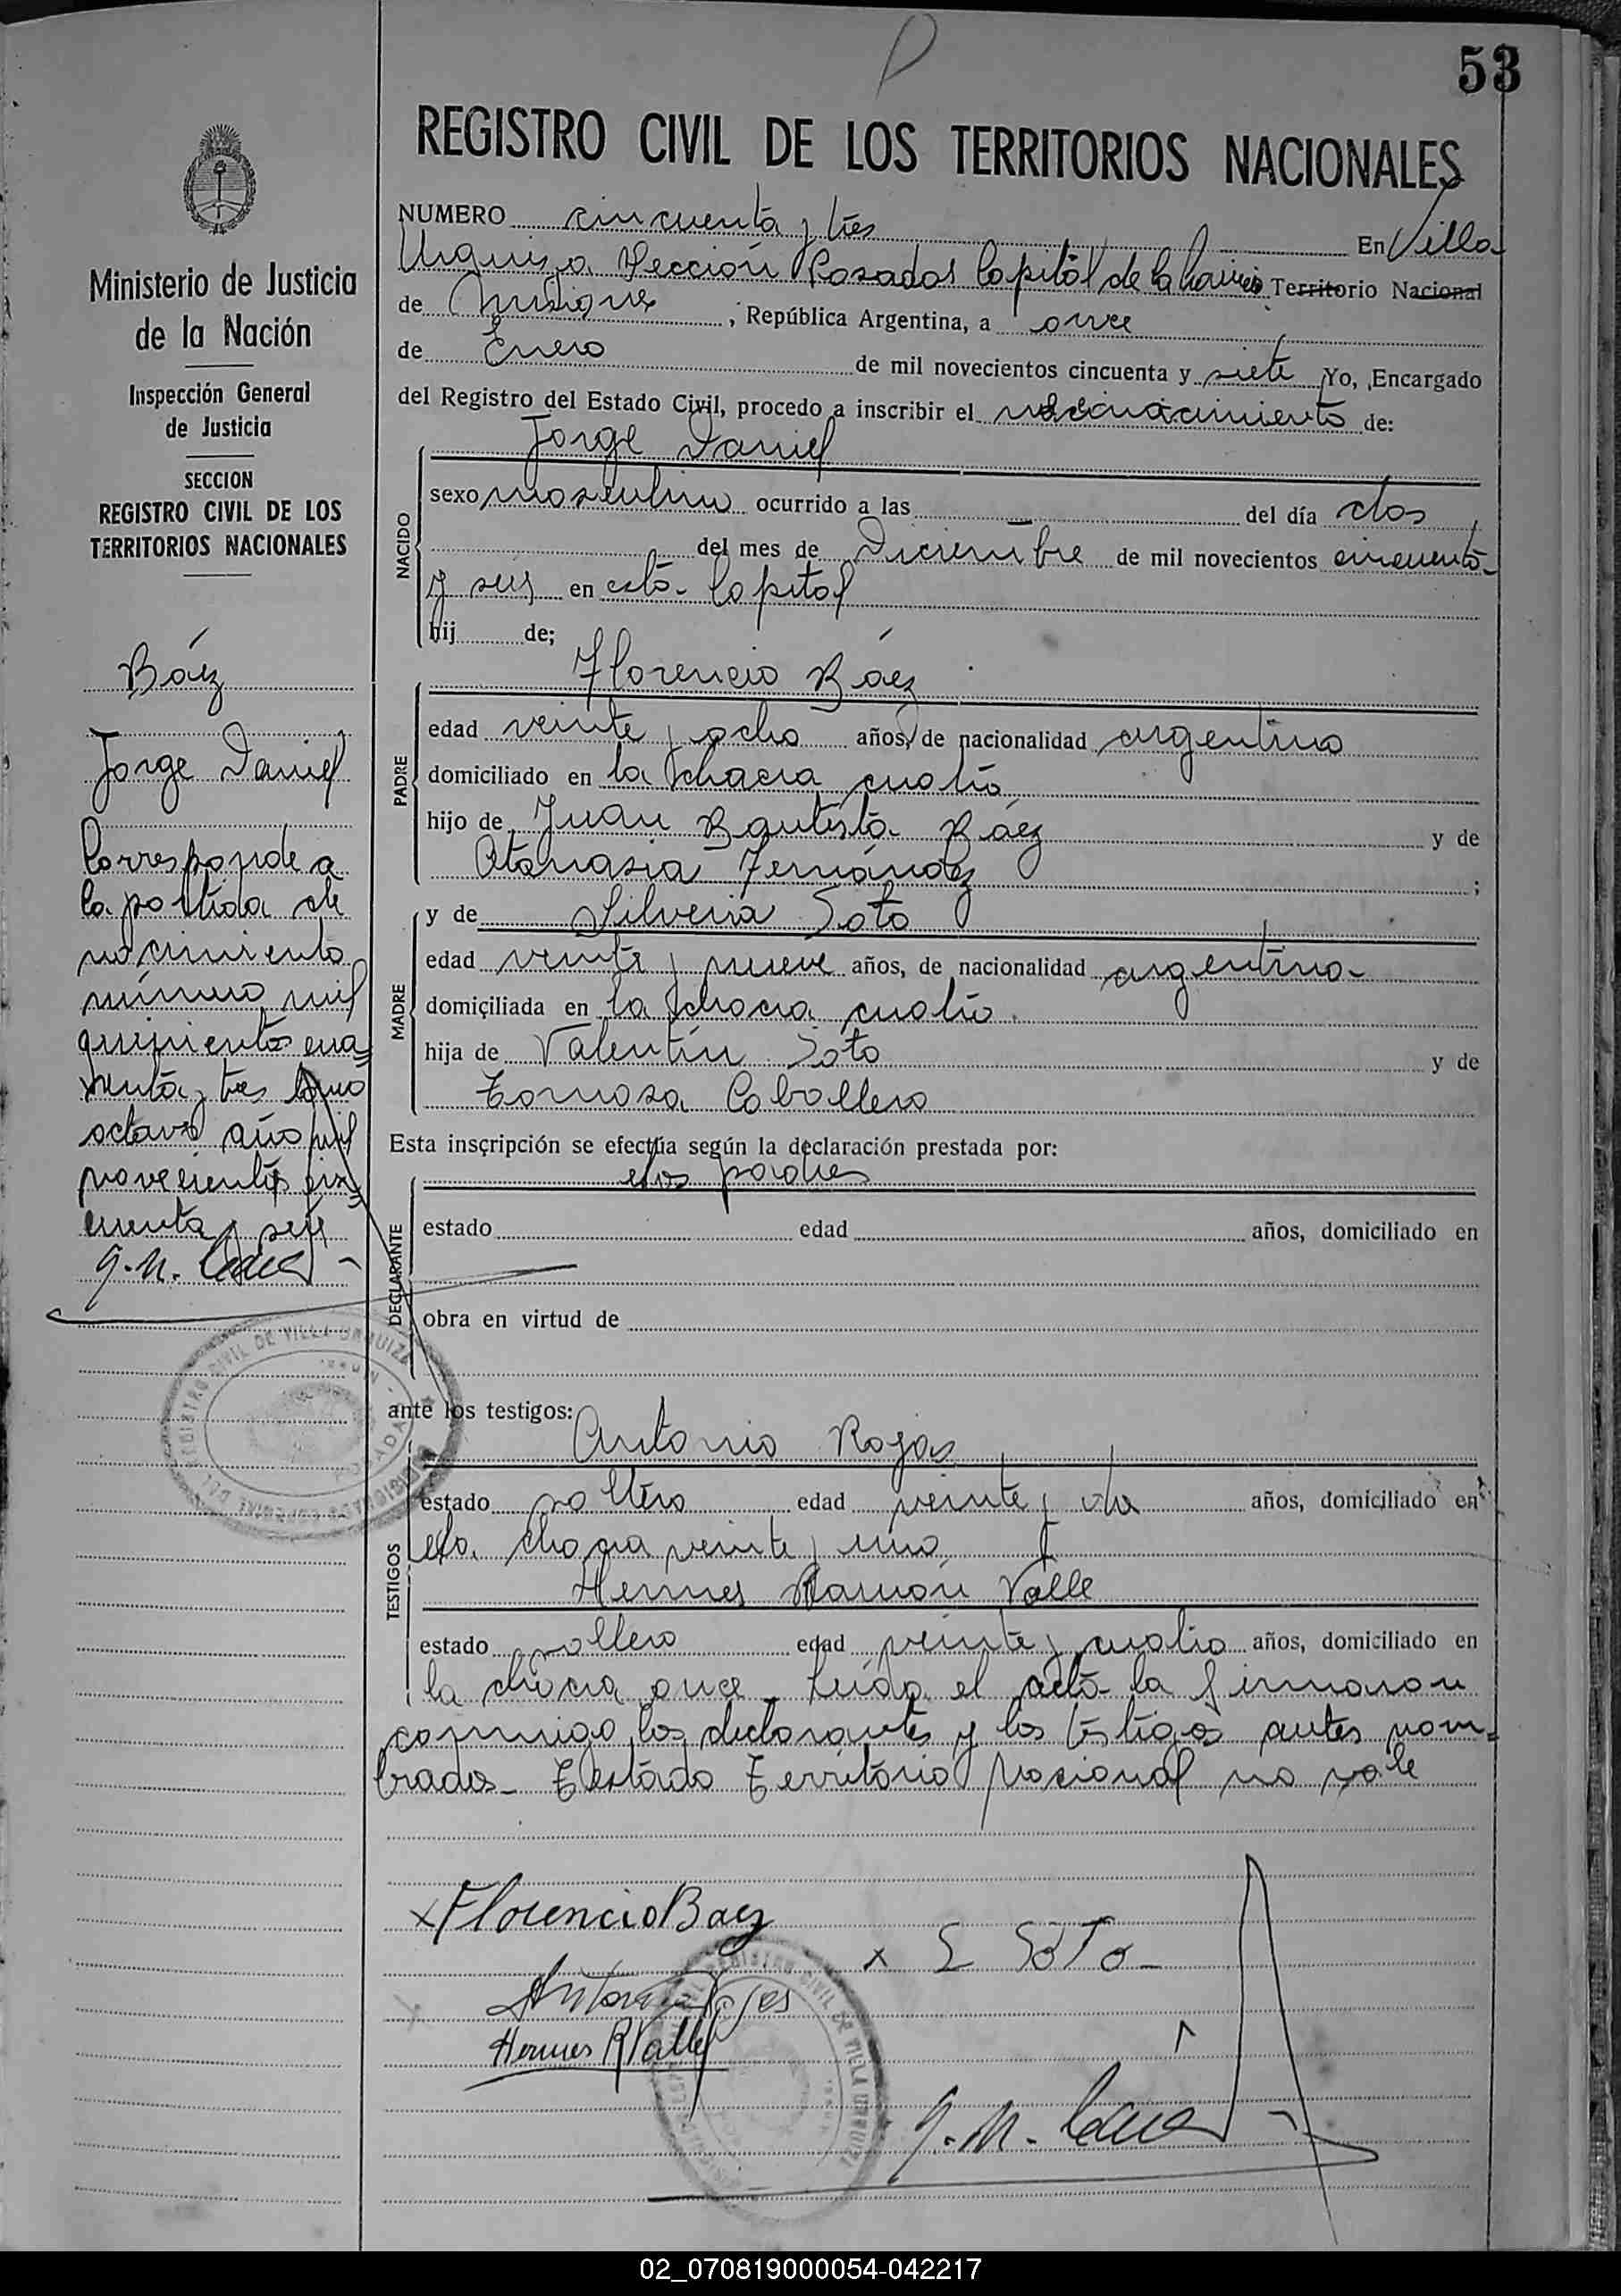 53
REGISTRO CIVIL DE LOS TERRITORIOS NACIONALES
NUMERO cincuenta y tres En Villa
Urquiza Sección Posadas Capital de la Territorio Nacional
de Misiones ; República Argentina, a once
de Enero de mil novecientos cincuenta y siete Yo, Encargado
del Registro del Estado Civil, procedo a inscribir el reconocimiento de:
Ministerio de Justicia
de la Nación
Inspección General
de Justicia
SECCION
REGISTRO CIVIL DE LOS
TERRITORIOS NACIONALES
Báez
Jorge Daniel
Corresponde a
la partida de
nacimiento
número mil
quinientos cua=
renta y tres tomo
octavo año mil
novecientos cin=
cuenta y seis
NACIDO
Jorge Daniel
sexo masculino ocurrido a las — del día dos
del mes de Diciembre de mil novecientos cincuenta
y seis en esta Capital
hij de;
PADRE
Florencio Báez
edad veinte y ocho años, de nacionalidad argentino
domiciliado en la chacra cuatro
hijo de Juan Bautista Báez y de
Atanasia Fernández ;
MADRE
y de Silveria Soto
edad veinte y nueve años, de nacionalidad argentina
domiciliada en la chacra cuatro
hija de Valentín Soto y de
Tomasa Caballero
Esta inscripción se efectúa según la declaración prestada por:
DECLARANTE
los padres
estado edad años, domiciliado en
obra en virtud de
ante los testigos:
TESTIGOS
Antonio Rojas
estado soltero edad veinte y años, domiciliado en
la chacra veinte y uno
Hermes Ramón Valle
estado soltero edad veinte y cuatro años, domiciliado en
la chacra once. Leída el acta la firmaron
conmigo los declarantes y los testigos antes nom=
brados_ Testado Territorio Nacional no vale
x Florencio Baez
x S Soto
Antonio Rojas
Hermes R Valle
02_070819000054-042217